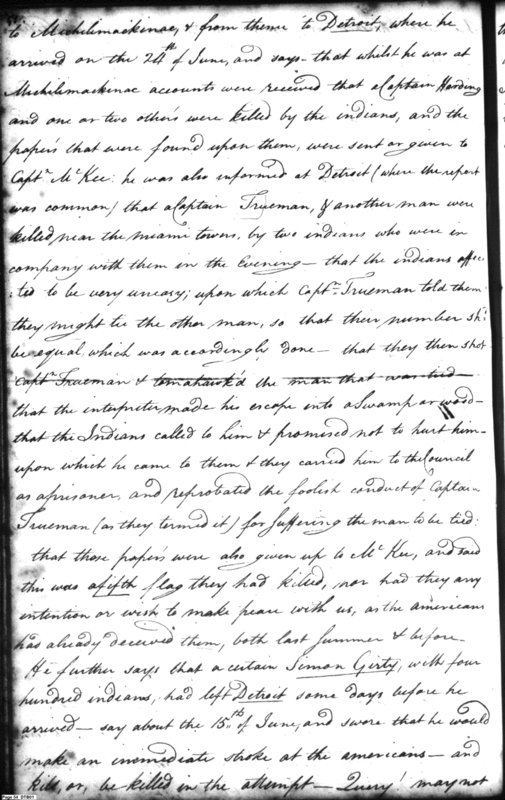 to Michilimackinac, & from thence to Detroit, where he
arrived on the 24th of June, and says - that whilst he was at
Michilimackinac accounts were received that a Captain Harding
and one or two others were killed by the indians, and the
papers that were found upon them, were sent or given to
Captn McKee: he was also informed at Detroit (where the report
was common) that a Captain Trueman, & another man were
killed, near the miami towns, by two indians who were in
company with them in the Evening - that the indians affec-
:ted to be very uneasy; upon which Captn Trueman told them
they might tie the other man, so that their number shd
be equal, which was accordingly done - that they then shot
Captn Trueman & tomahawk'd the man that was tied -
that the interpreter made his escape into a Swamp or wood -
that the Indians called to him & promised not to hurt him -
upon which he came to them & they carried him to the Council
as a prisoner, and reprobated the foolish conduct of Captain
Trueman (as they termed it) for suffering the man to be tied:
that those papers were also given up to McKee, and said
this was a fifth flag they had killed, nor had they any
intention or wish to make peace with us, as the americans
has already deceived them, both last summer & before -
He further says that a certain Simon Girty, with four
hundred indians, had left Detroit some days before he
arrived - say about the 15th of June, and swore that he would
make an immediate stroke at the americans - and
kill, or, be killed in the attempt - Query! may not